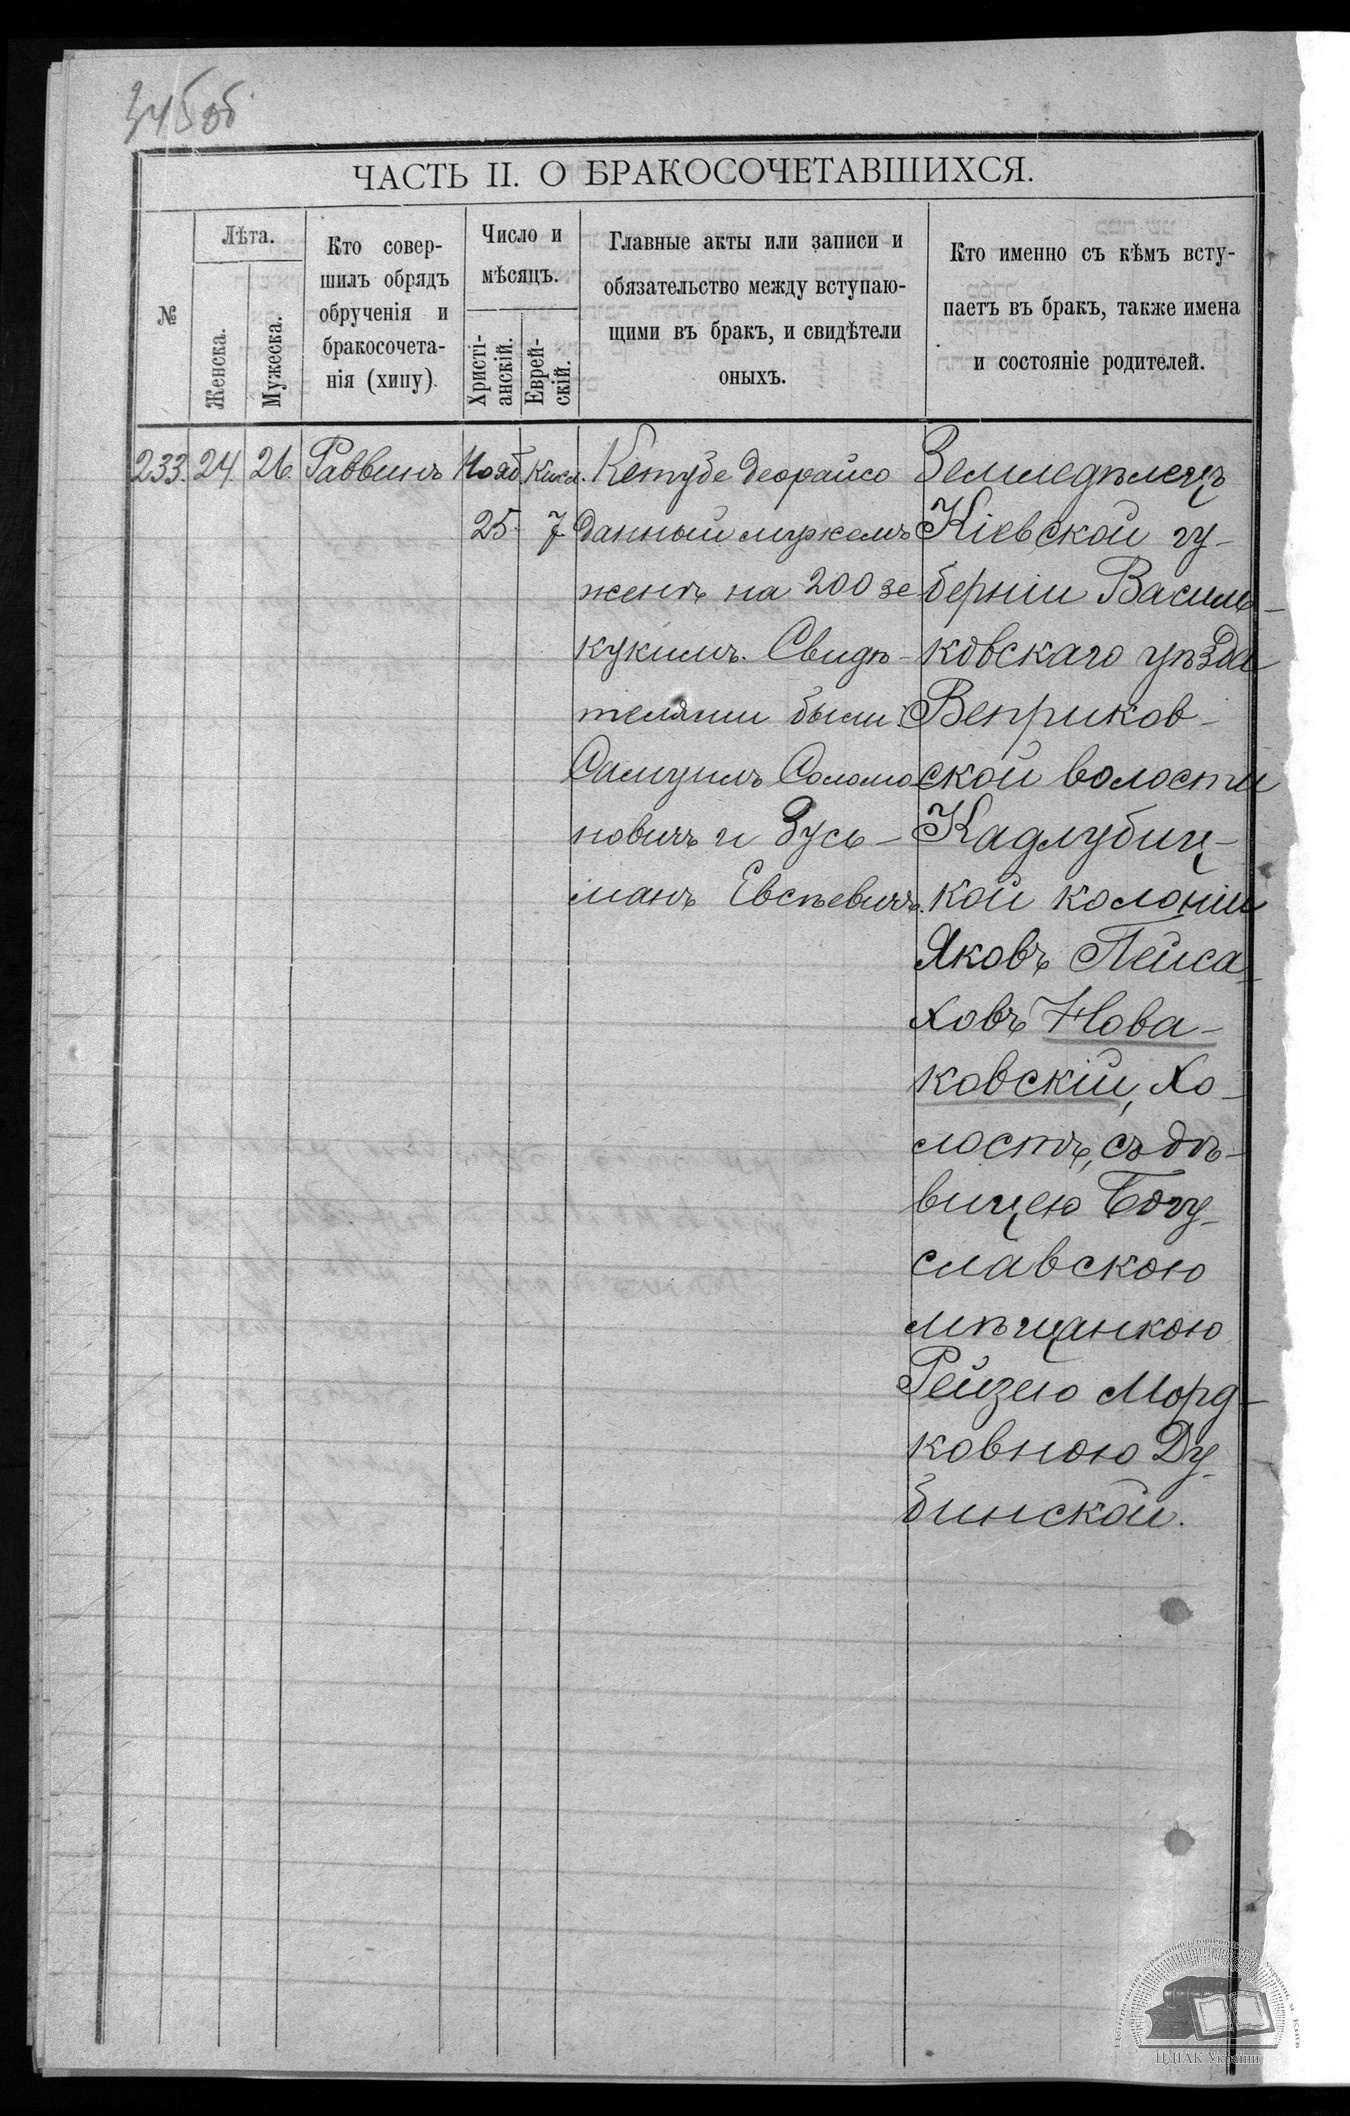 345об
ЧАСТЬ II. О БРАКОСОЧЕТАВШИХСЯ.
№
Лѣта.
Женска.
Мужеска.
Кто совер-
шилъ обрядъ
обрученія и
бракосочета-
нія (хипу).
Число и
мѣсяцъ.
Христі-
анскій.
Еврей-
скій.
Главные акты или записи и
обязательство между вступаю-
щими въ бракъ, и свидѣтели
оныхъ.
Кто именно съ кѣмъ всту-
паетъ въ бракъ, также имена
и состояніе родителей.
233. 24. 26. Раввинъ Нояб. Кисл.
25. 7
Кетубе деорайсо
данный мужемъ
женѣ на 200 зе
кукимъ. Свидѣ-
телями были:
Самуилъ Соломо-
новичъ и Зусь-
манъ Евсѣевичъ.
Земледѣлецъ
Кіевской гу-
берніи Василь-
ковскаго уѣзда
Веприков-
ской волости
Кадлубиц-
кой колоніи
Яковъ Пейса-
ховъ Нова-
ковскій, хо-
лостъ, съ дѣ-
вицею Богу-
славскою
мѣщанкою
Рейзею Морд-
ковною Ду-
бинской.
ЦДІАК України